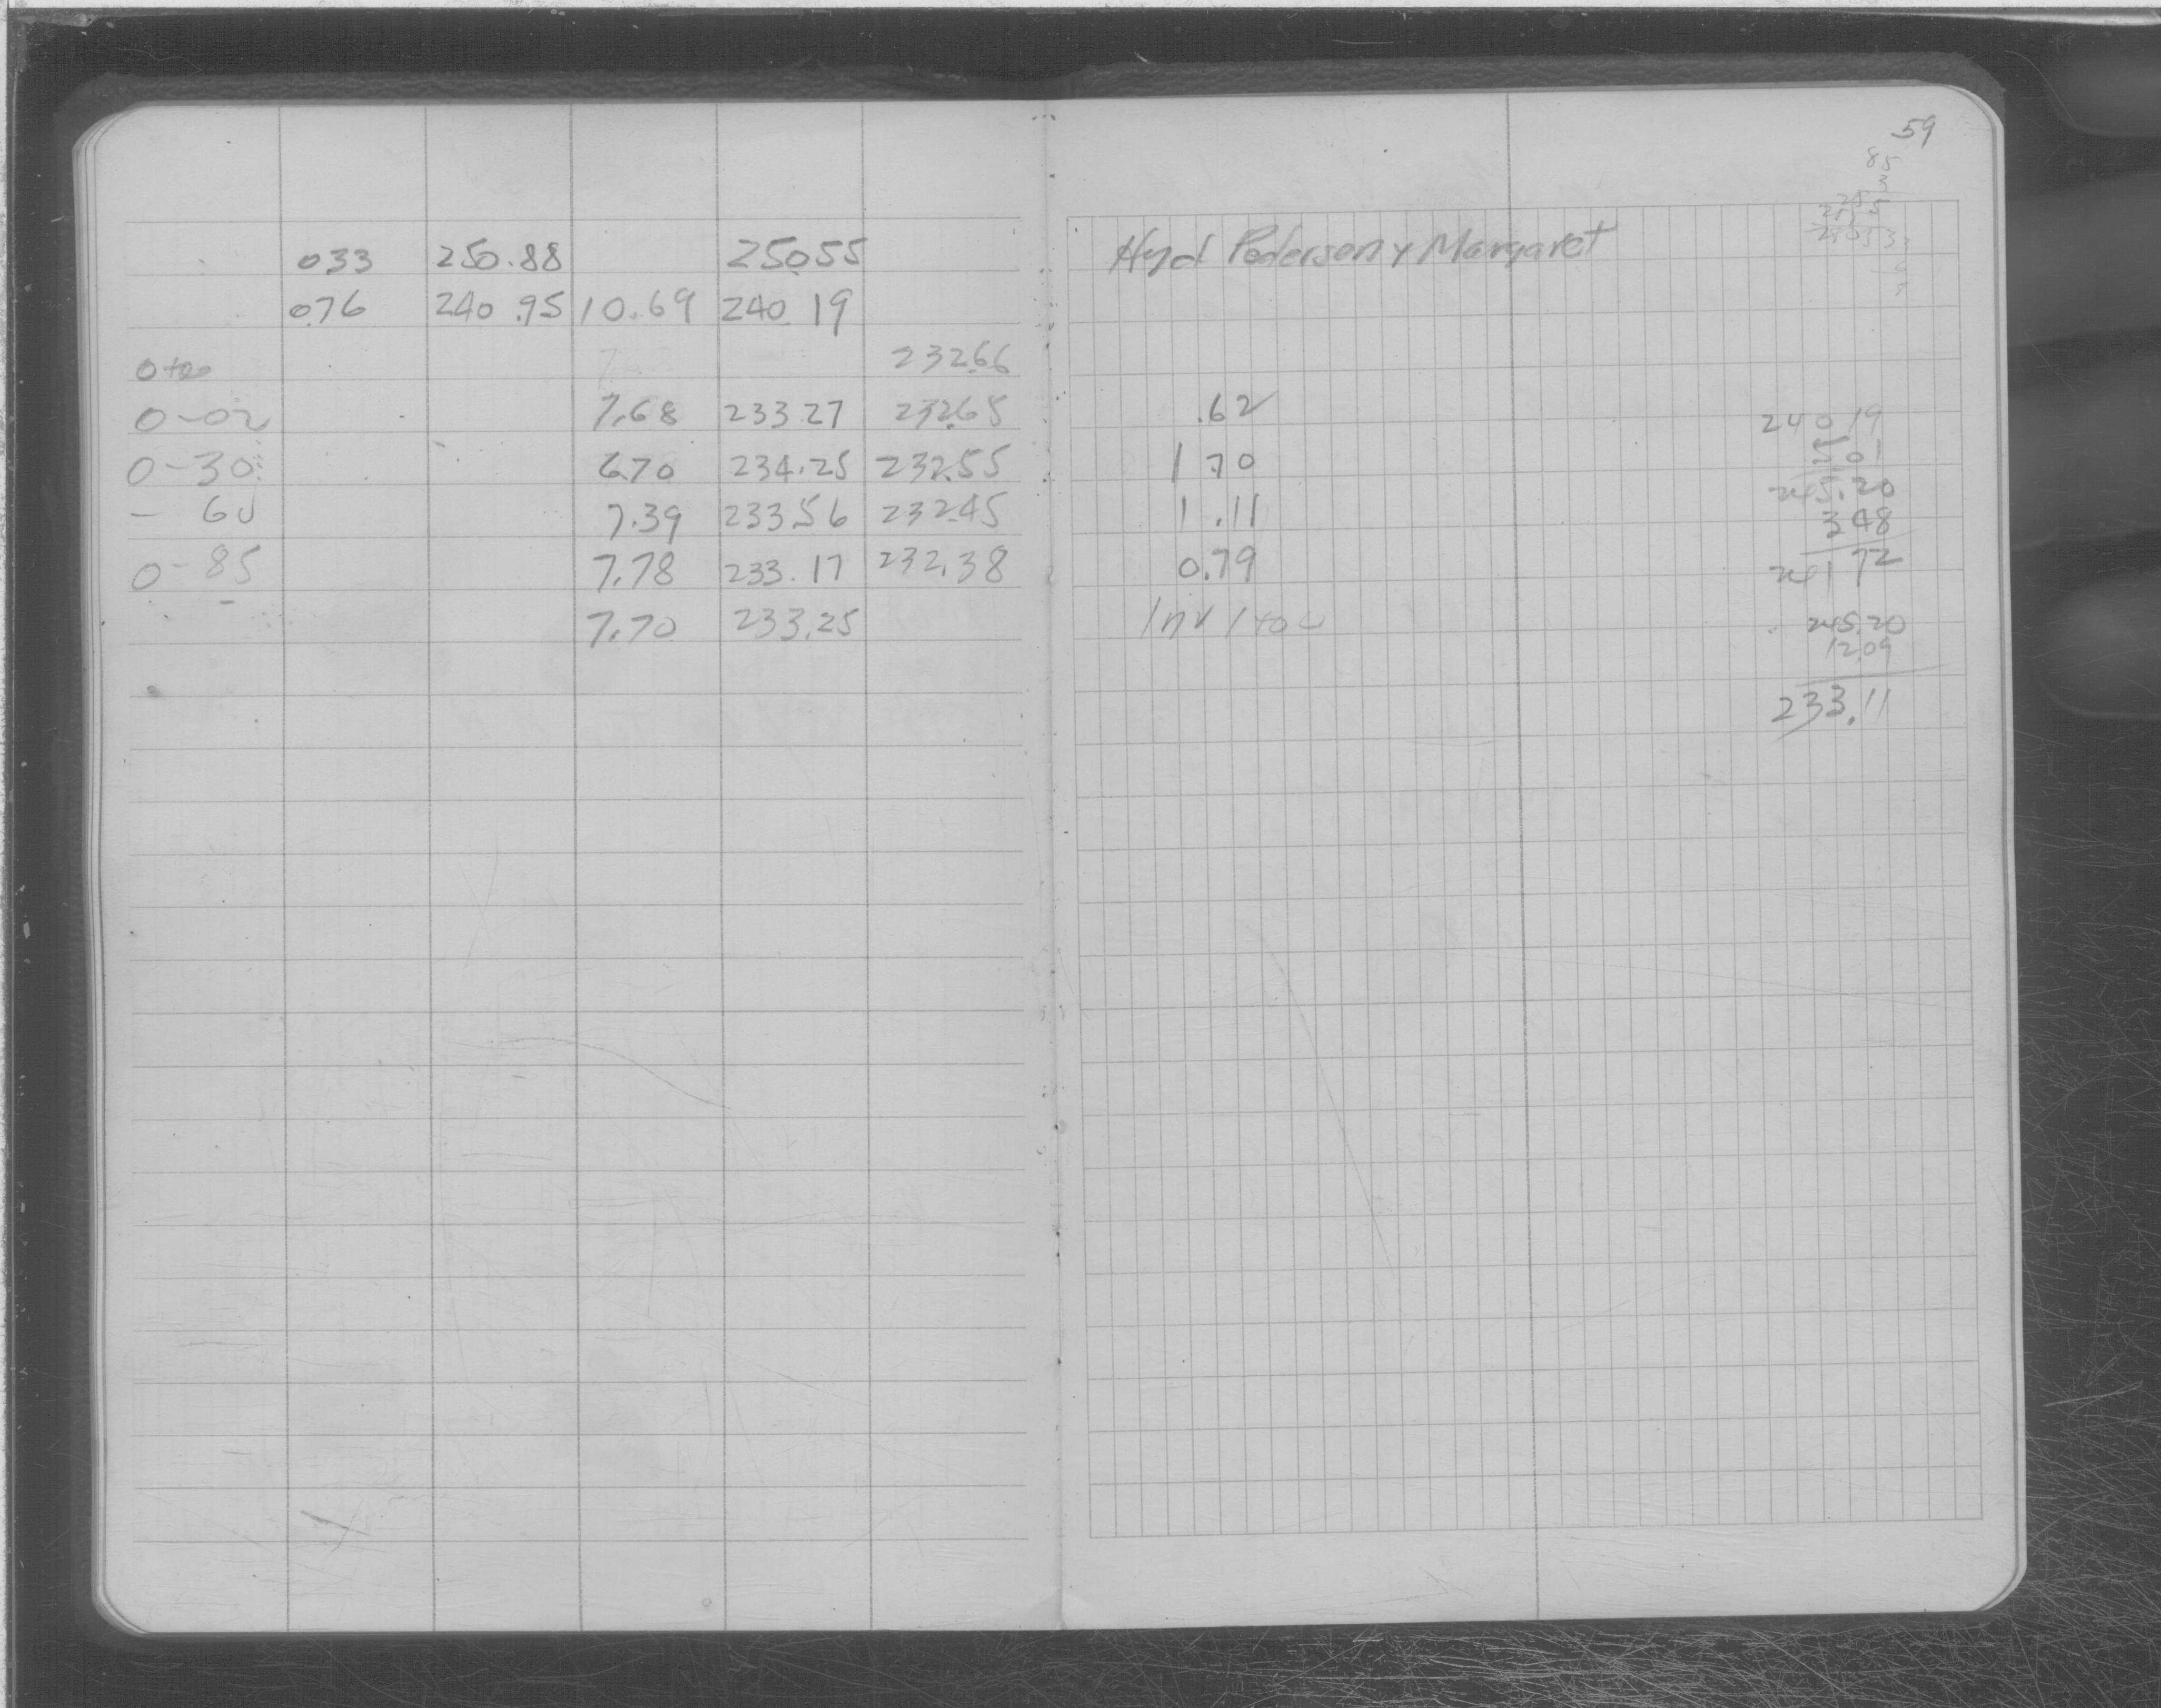 59
85
3
033 250.88 250.55 Hyd Pedersen y Margaret
0.76 240.95 10.69 240.19
0+00 232.66
0-02 7.68 233.27 232.65 .62
0-30 6.70 234.25 232.55 1.70
- 60 7.39 233.56 232.45 1.11
0-85 7.78 233.17 232.38 0.79
7.70 233.25 Inv 1+00
240.19
5.01
245.20
3.48
241.72
245.20
12.09
233.11